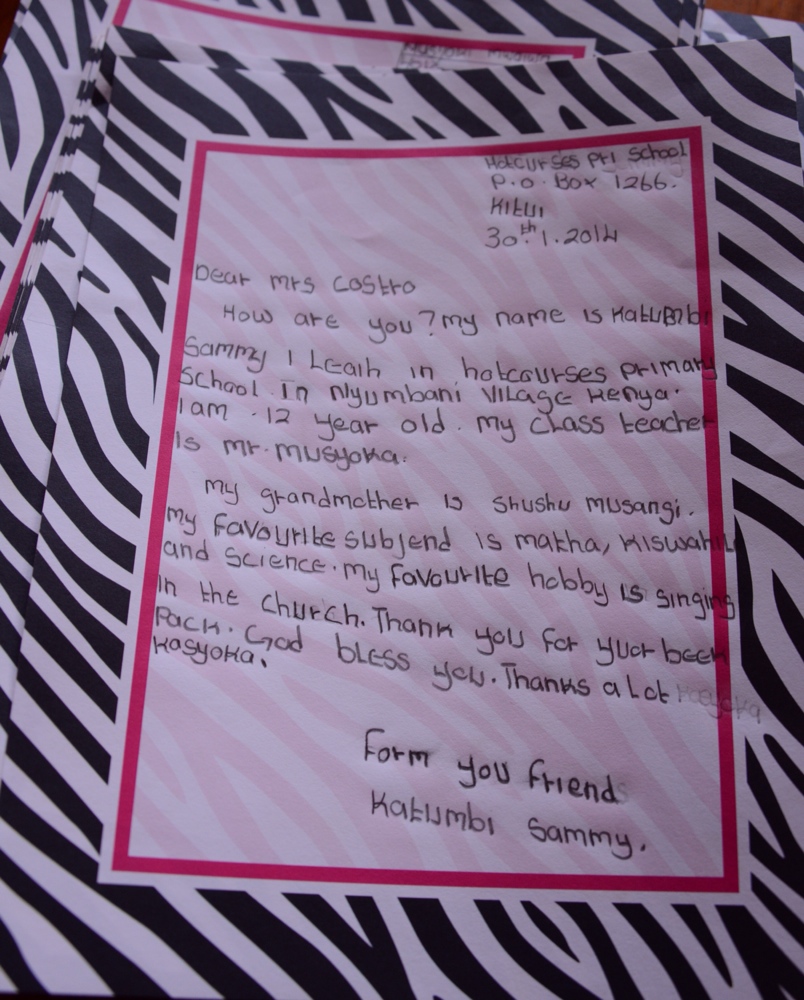 Hotcurses Pri School
P.O. Box 1266.
Kitui
30th.1.2014
Dear mrs Costro
How are you? my name is Katumbi
Sammy I Leaih in hotcourses primary
School in nyumbani Vilage Kenya.
I am . 12 year old. my class teacher
Is mr. musyoka.
my grandmother is shushu musangi.
my favourite subjend is matha, Kiswahili
and science. my favourite hobby is singing
in the church. Thank you for your beek
Pack. God bless you. Thanks a Lot kasyoka
Kasyoka.
Form you friend
Katumbi Sammy.